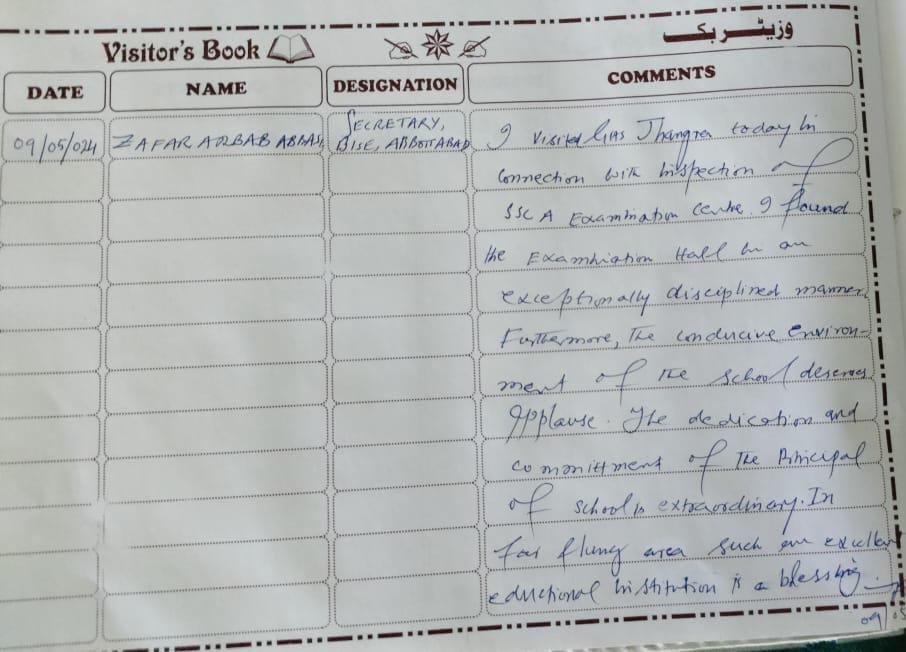 Visitor's Book
وزیٹر بک
DATE NAME DESIGNATION COMMENTS
09/05/024 ZAFAR ARBAB ABBASI SECRETARY,
BISE, ABBOTTABAD
I visited GHS Jhangra today in
connection with inspection of
SSC A Examination Centre. I found
the Examination Hall in an
exceptionally disciplined manner.
Furthermore, The conducive environ-
ment of the school deserves
applause. The dedication and
commitment of the Principal
of school is extraordinary. In
far flung area such an excellent
eductional institution is a blessing.
09/05